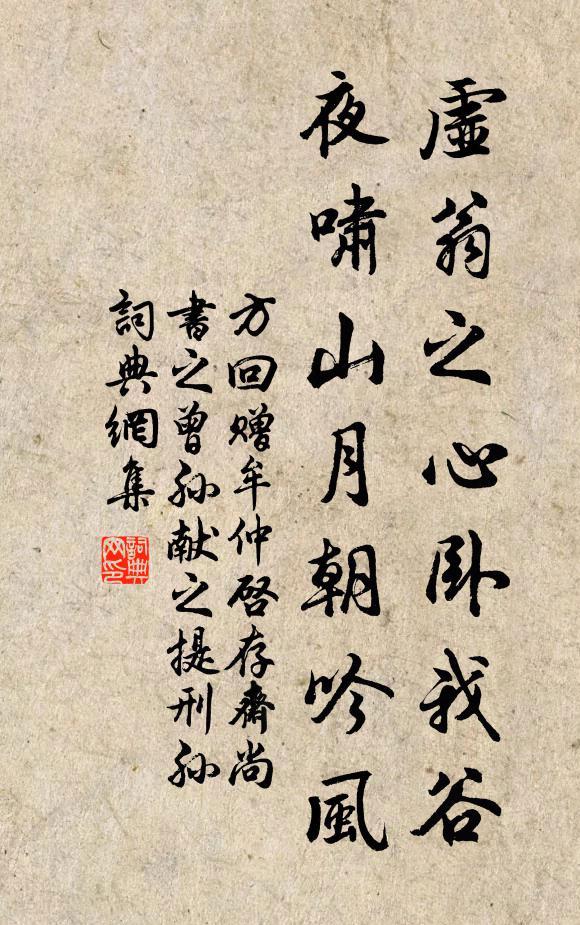 虛翁之心臥我谷
夜嘯山月朝吟風
方回贈牟仲啓存齋尚
書之曾孫献之提刑孫
詞典網集
詞典
网印